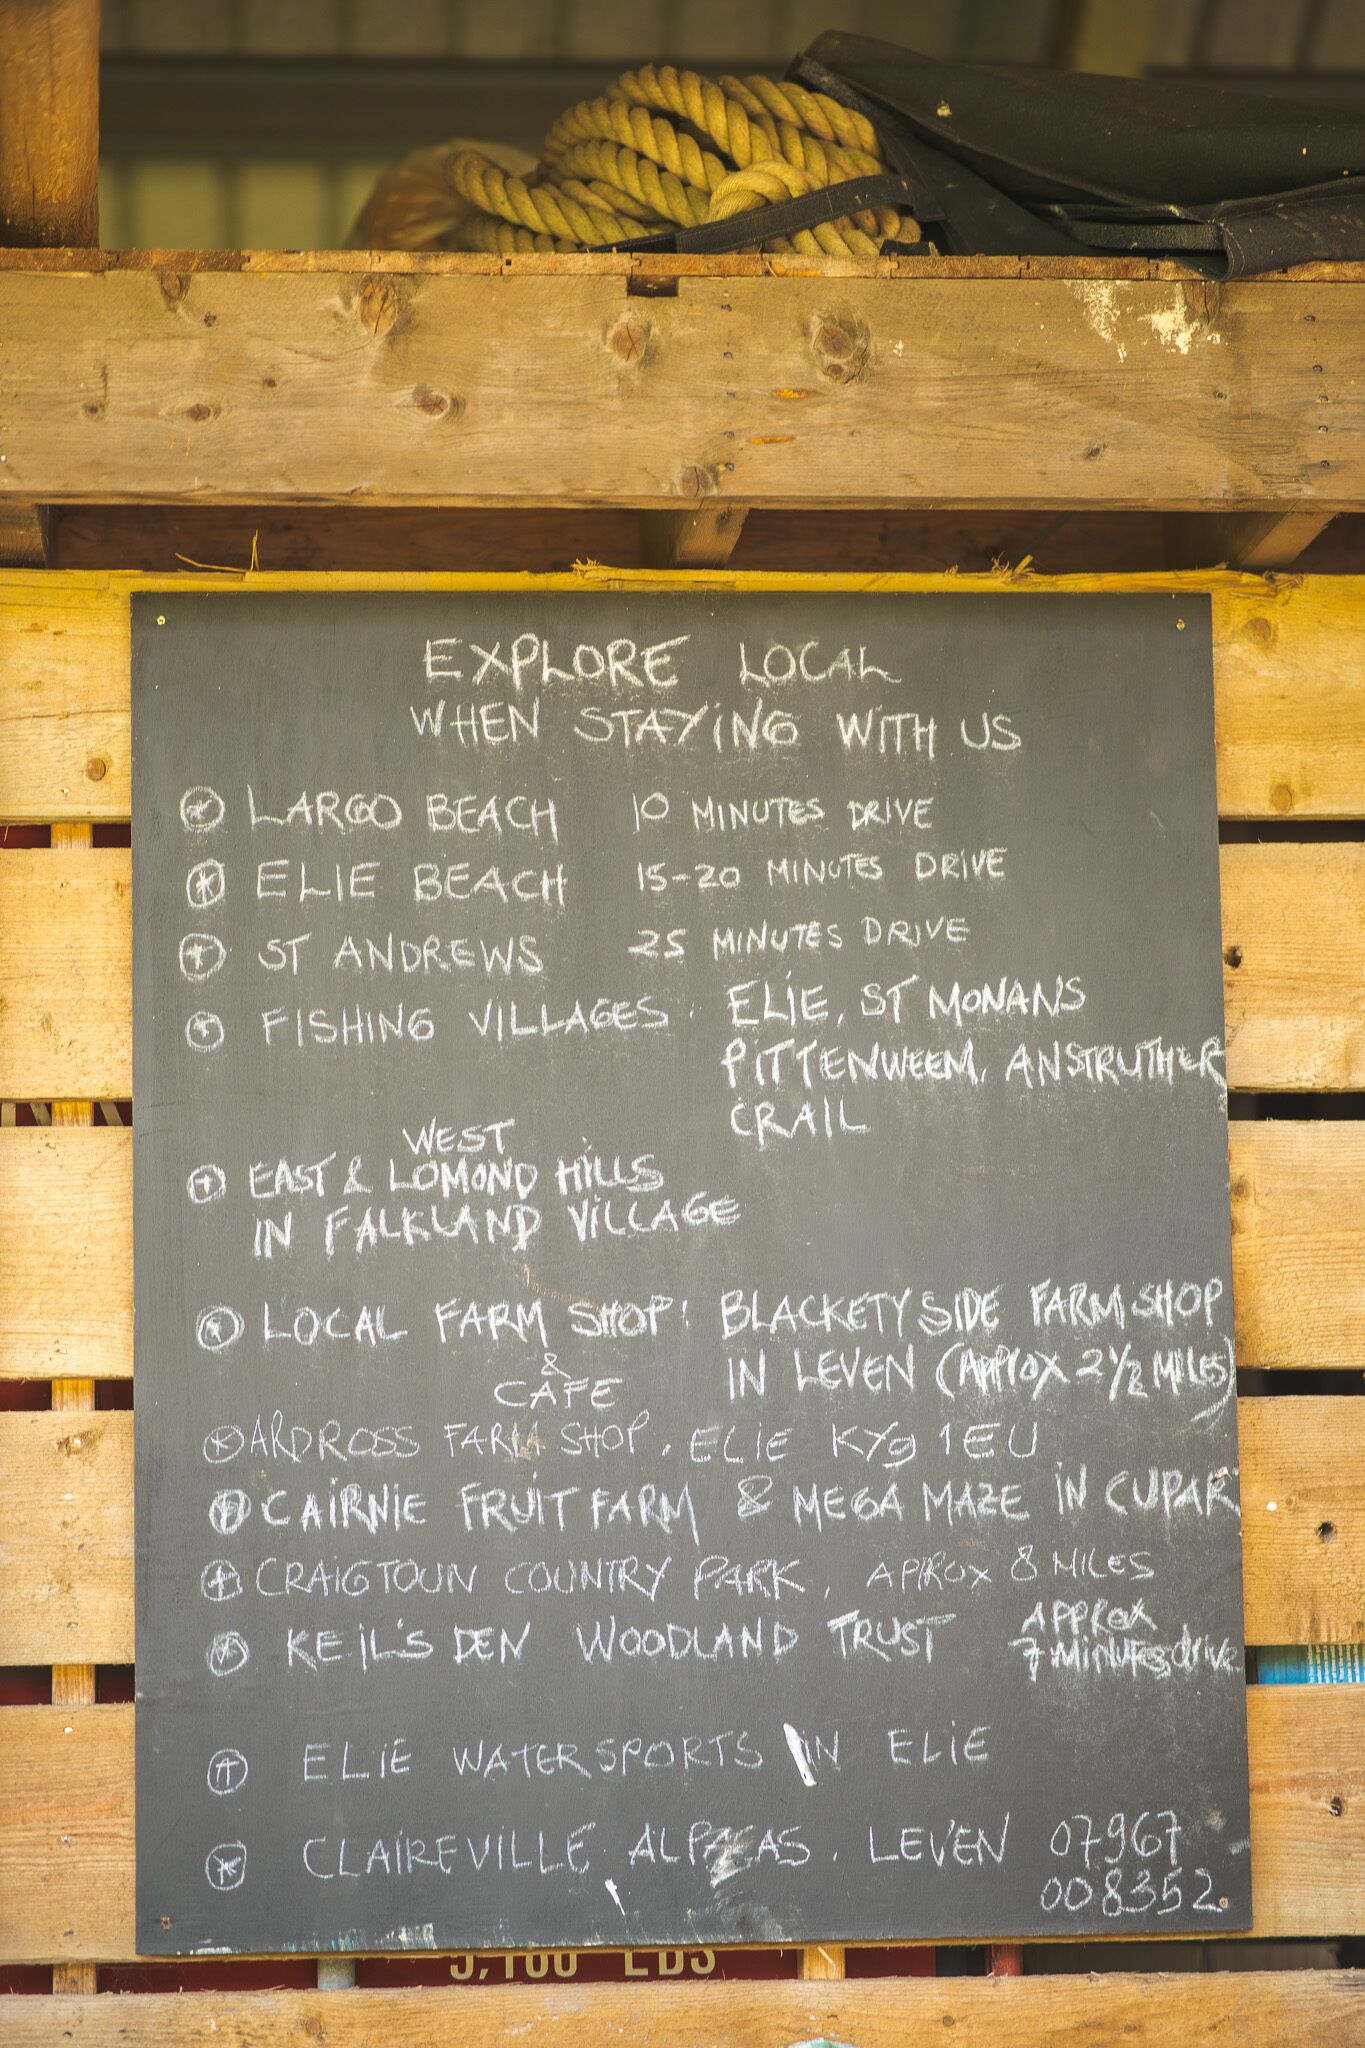 EXPLORE LOCAL
WHEN STAYiNG WiTH US
LARGO BEACH 10 MINUTES DRIVE
ELIE BEACH 15-20 MINUTES DRIVE
ST ANDREWS 25 MINUTES DRIVE
FISHING VILLAGES: ELiE, ST MONANS
PiTTENWEEM, ANSTRUTHER
CRAIL
WEST
EAST & LOMOND HiLLS
IN FALKLAND ViLLAGE
LOCAL FARM SHOP: BLACKETYSIDE FARMSHOP
& CAFE
IN LEVEN (APPROX 2 1/2 MILES)
ARDROSS FARM SHOP, ELIE KY9 1EU
CAIRNIE FRUiT FARM & MEGA MAZE iN CUPAR
CRAIGTOUN COUNTRY PARK, APPROX 8 MILES
KEiL'S DEN WOODLAND TRUST APPROX
7 Minutes drive
ELiE WATERSPORTS iN ELiE
CLAiREViLLE ALPACAS, LEVEN 07967
008352
5,100 LBS